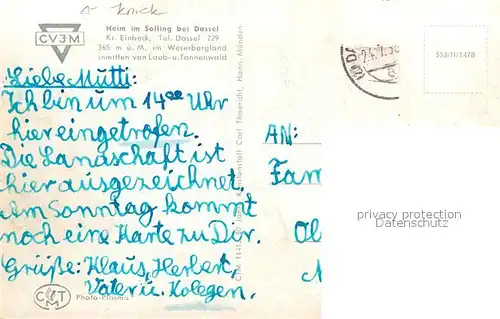 Knick
CVJM
Heim im Solling bei Dassel
Kr. Einbeck, Tel. Dassel 229
365 m ü. M. im Weserbergland
inmitten von Laub- u. Tannenwald
353/11/1478
Liebe Mutti:
Ich bin um 14 00 Uhr
hier eingetrofen.
Die Landschaft ist
hier ausgezeichnet.
Am Sonntag kommt
noch eine Karte zu Dir.
Grüße: Klaus, Herbert,
Vater u. Kolegen.
AN:
Fam
privacy protection
Datenschutz
CTM
Photo-Plasma
Carl Thoericht, Hann. Münden